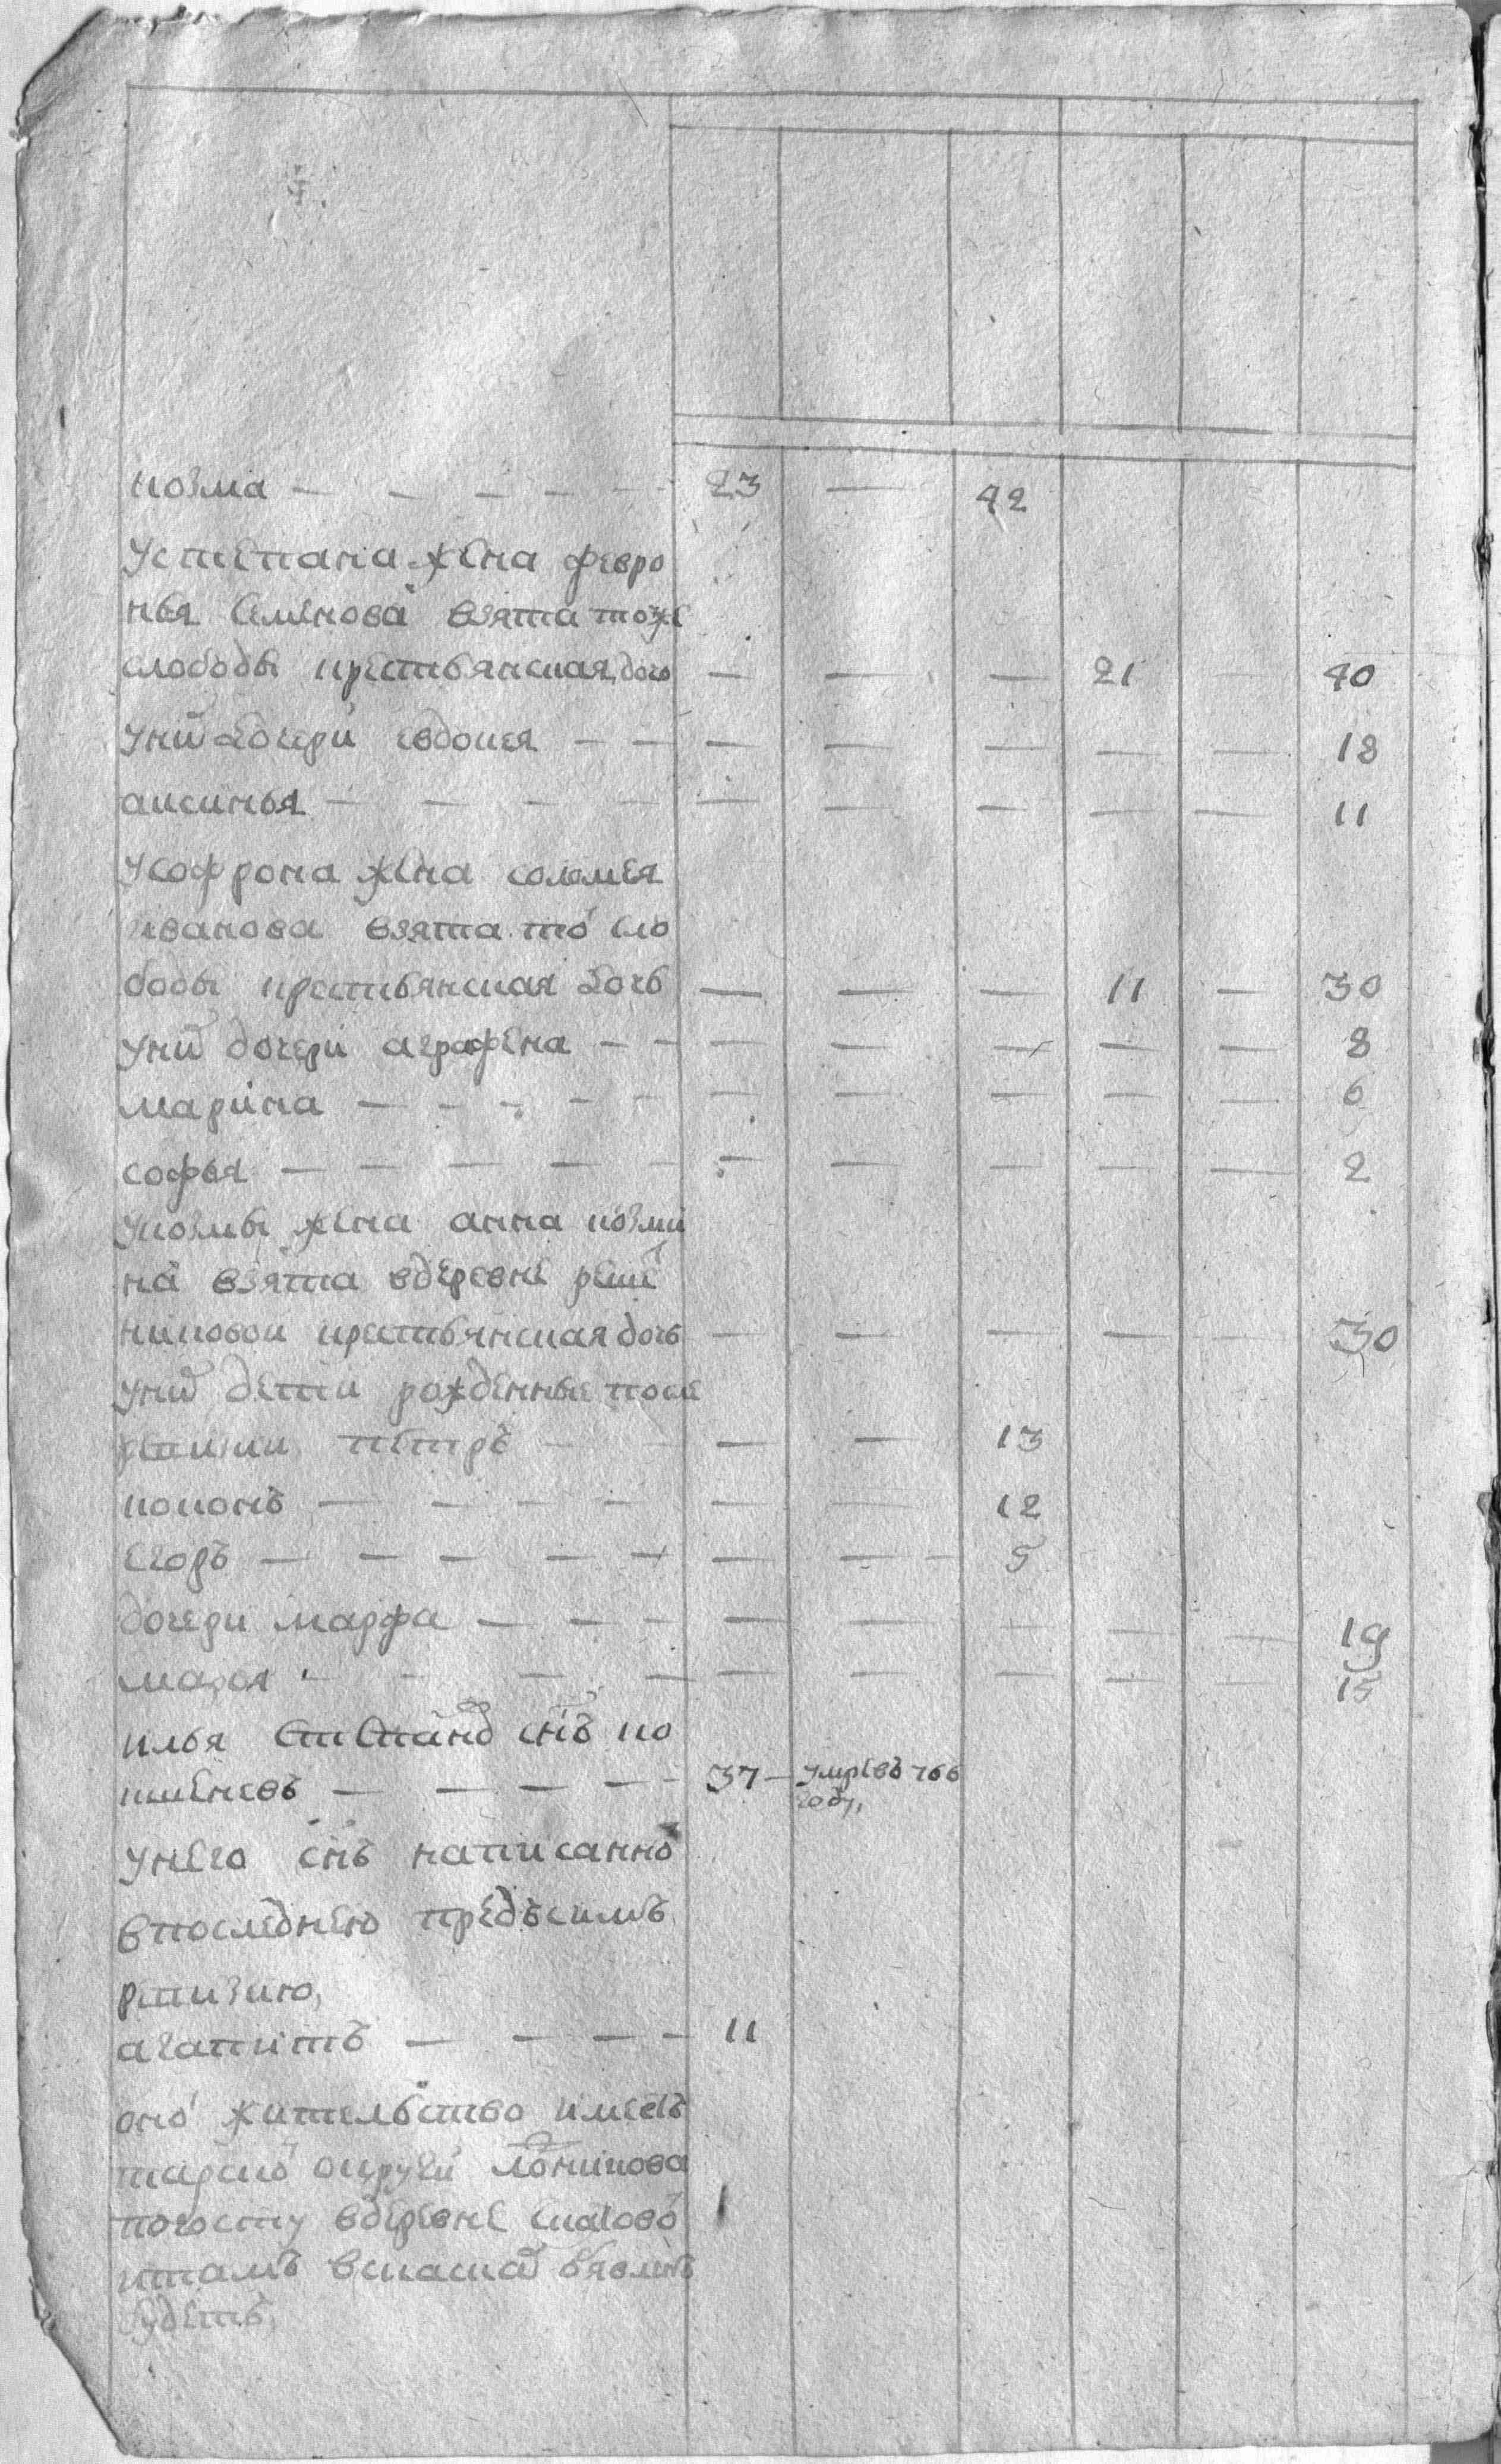 козма — — — — — 23 — 42
устепана жена февро
нья семенова взята тоже
слободы крестьянская дочь — — — 21 — 40
уних дочери евдокея — — — — — — — 18
аксинья — — — — — — — — — 11
усофрона жена соломея
иванова взята тои сло
боды крестьянская дочь — — — 11 — 30
уних дочери аграфена — — — — — — — 8
марина — — — — — — — — — — 6
софья — — — — — — — — — — 2
укозмы жена анна козми
на взята вдеревне реше
никовои крестьянская дочь — — — — — 30
уних дети рожденные после
ревизии петръ — — — — 13
кононъ — — — — — — 12
егоръ — — — — — — — — 5
дочери марфа — — — — — — — — 19
марья — — — — — — — — — 15
илья степановъ снъ по
— — — — 37 — умре въ 766
году,
унего снъ написанно
впоследнею предъсимъ
ревизию,
агапитъ — — — — 11
оно жительство имеетъ
округи
погосту вдеревне
итамъ
будетъ,